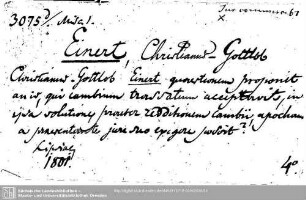 3075
Einert, Christianus-Gottlob
Christianus-Gottlob Einert quaestionem proponit
an is, qui cambium trassatum acceptavit, in
ejus solutione praeter redditionem cambii, apocham
a praesentante jure suo exigere possit?
Lipsiae,
1801 4°
Sächsische Landesbibliothek -
Staats- und Universitätsbibliothek Dresden